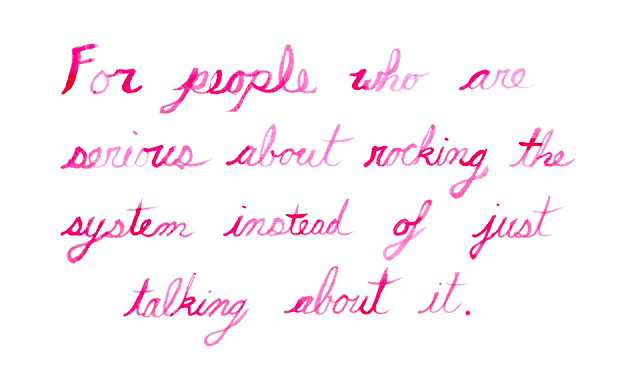 For people who are
serious about rocking the
system instead of just
talking about it.